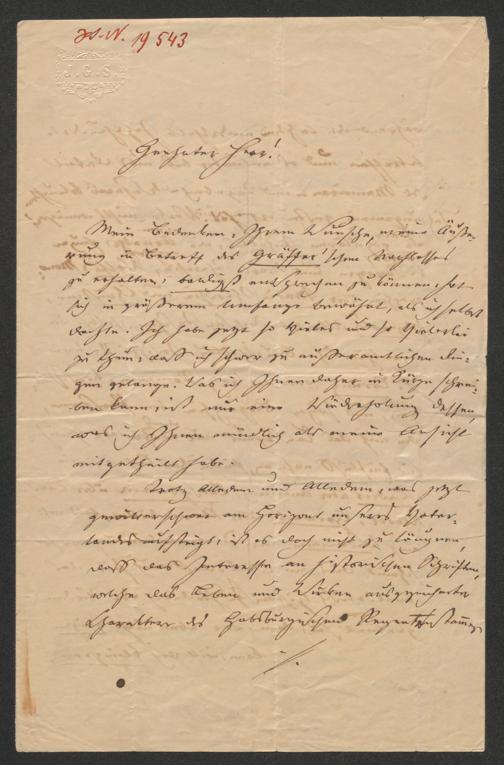 H.-N. 19543
I.G.S.
Geehrter Herr!
Mein Bedenken, Ihrem Wunsche, meine Äuße-
rung in Betreff des Gräffer'schen Nachlasses
zu erhalten, baldigst entsprechen zu können, hat
sich in größerem Umfange bewährt, als ich selbst
dachte. Ich habe jetzt so Vieles und so Vielerlei
zu thun, daß ich schwer zu außeramtlichen Din-
gen gelange. Was ich Ihnen daher in Kürze schrei-
ben kann, ist nur eine Wiederholung dessen,
was ich Ihnen mündlich als meine Ansicht
mitgetheilt habe.
Trotz Alledem und Alledem, was jetzt
gewitterschwer am Horizont unseres Vater-
landes aufsteigt, ist es doch nicht zu läugnen,
daß das Interesse an historischen Schriften,
welche das Leben und Wirken ausgezeichneter
Charaktere des Habsburgischen Regentenstammes